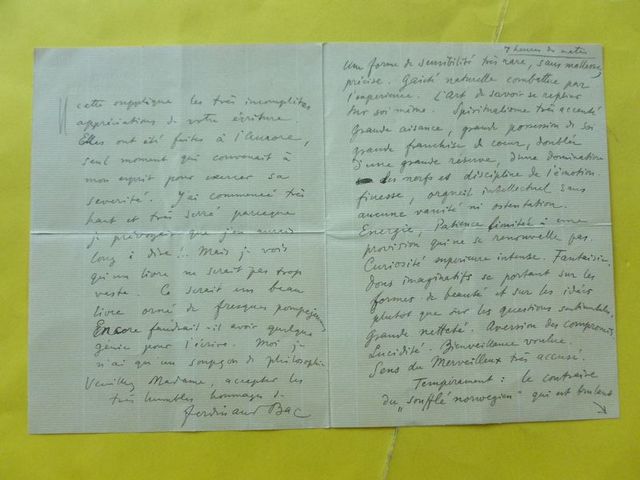 cette supplique les très incomplètes
appréciations de votre écriture.
Elles ont été faites à l'Aurore,
seul moment qui convenait à
mon esprit pour exercer sa
severité. J'ai commencé très
haut et très serré parceque
je prévoyais que j'en aurais
long à dire!! Mais je vois
qu'un livre ne serait pas trop
vaste. Ce serait un beau
livre orné de fresques pompejennes
Encore faudrait-il avoir quelque
génie pour l'écrire. Moi je
n'ai qu'un soupçon de philosophie
Veuillez Madame, accepter les
très humbles hommages de
Ferdinand Bac
7 heures du matin
Une forme de sensibilité très rare, sans mollesse,
précise. Gaieté naturelle combattue par
l'experience. L'Art de savoir se replier
sur soi même. Spiritualisme très accentué
Grande aisance, grande possession de soi
grande franchise de cœur, doublée
d'une grande reserve, d'une domination
des nerfs et discipline de l'émotion.
finesse, orgueil intellectuel sans
aucune vanité ni ostentation.
Energie, Patience limitée à une
provision qui ne se renouvelle pas.
Curiosité superieure intense. Fantaisie.
dons imaginatifs se portant sur les
formes de beauté et sur les idées
plutot que sur les questions sentimentales.
Grande netteté. Aversion des compromis.
Lucidité. Bienveillance voulue.
Sens du Merveilleux très accusé.
Temperement : le contraire
du „soufflé norwegien" qui est brulant